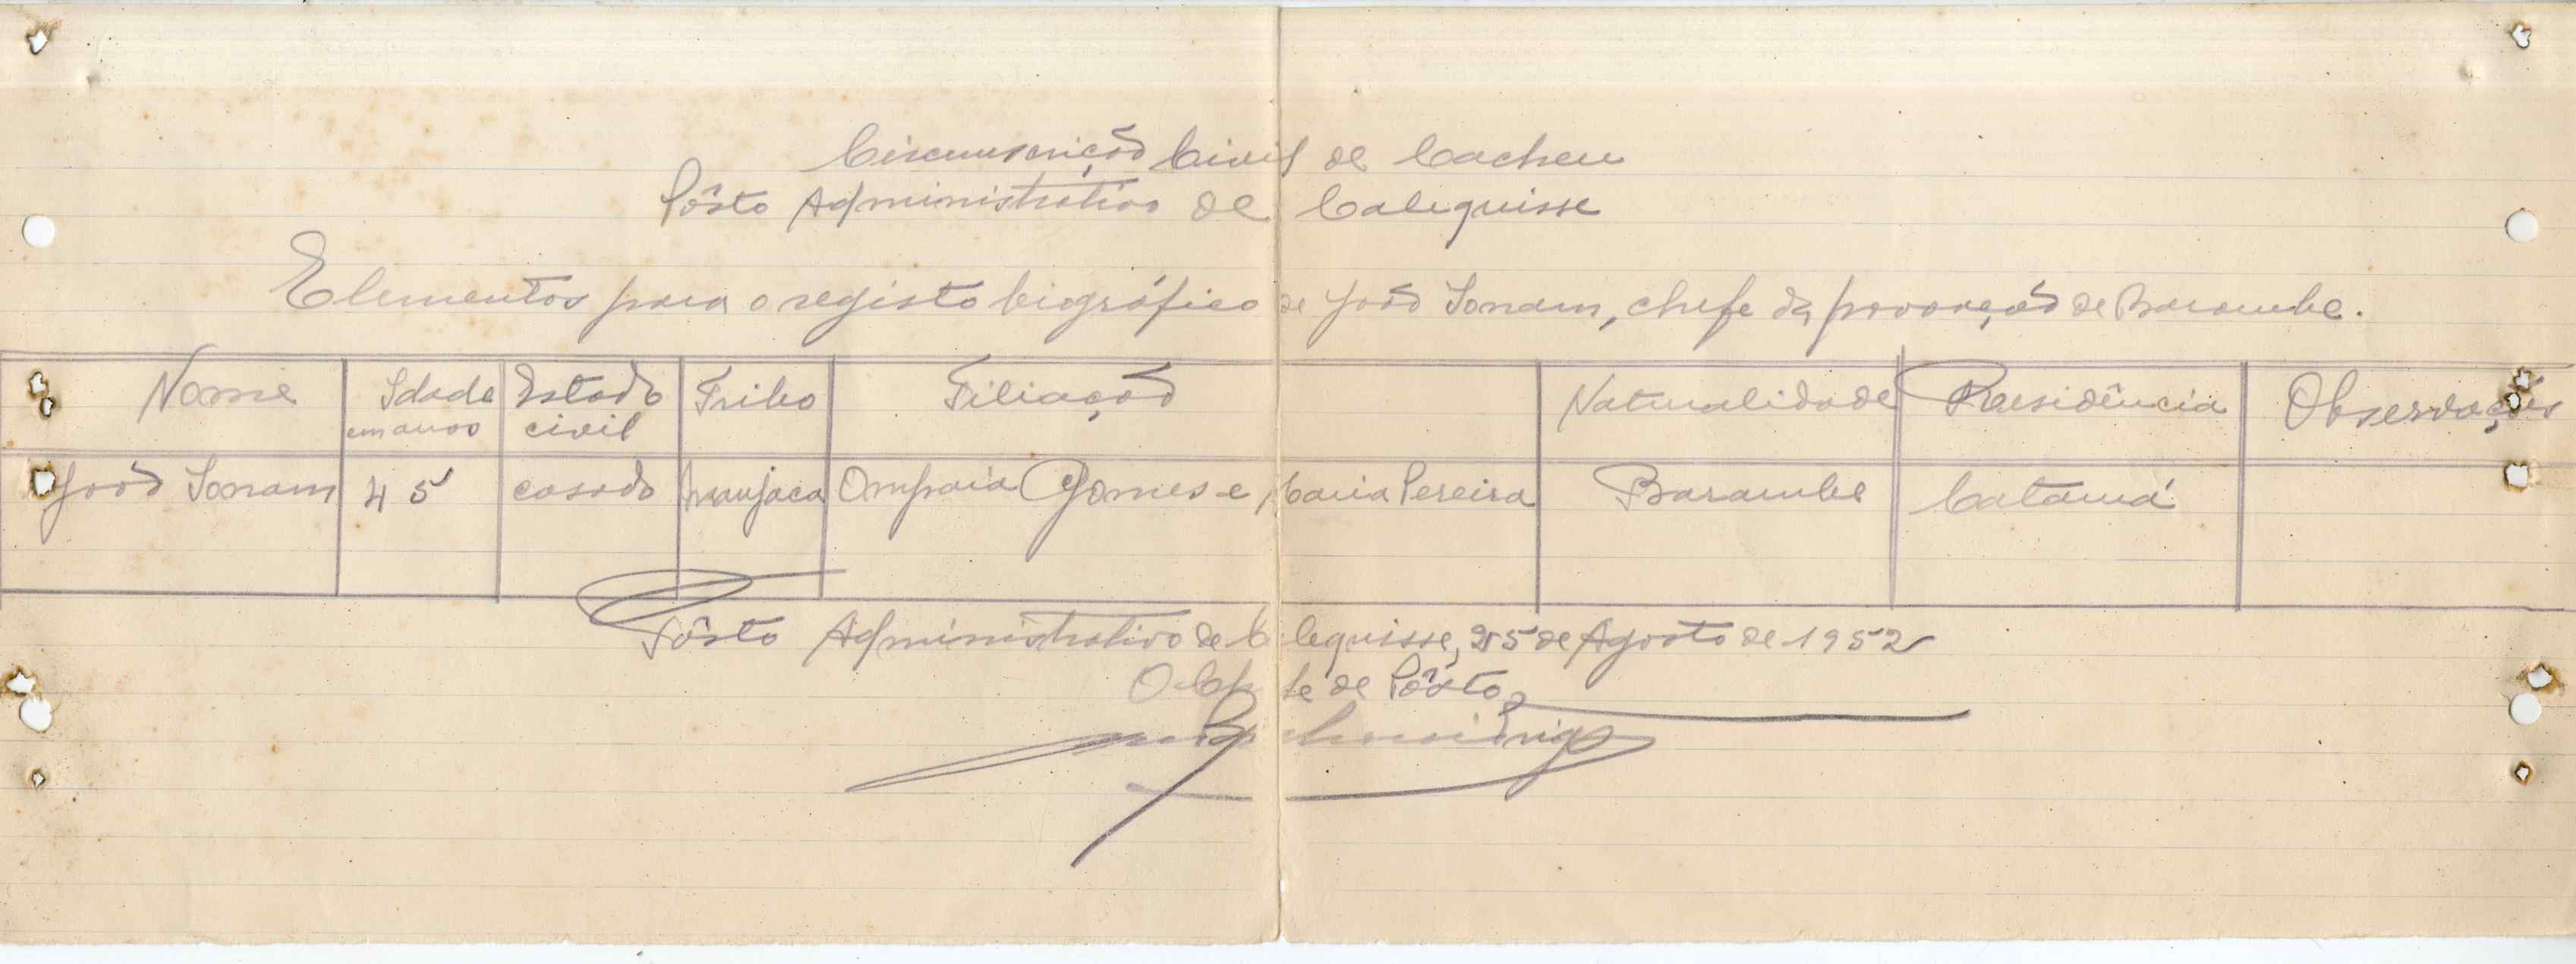 Circunscrição Civil de Cacheu
Pôsto Administrativo de Calequisse
Elementos para o registo biográfico de João Sonam, chefe da povoação de Barambe.
Nome Idade em anos Estado civil Tribo Filiação Naturalidade Residência Observações
João Sonam 45 casado manjaca Ompaia Gomes e Maria Pereira Barambe Catamá
Pôsto Administrativo de C lequisse, 25 de Agosto de 1952
O Che fe de Pôsto,